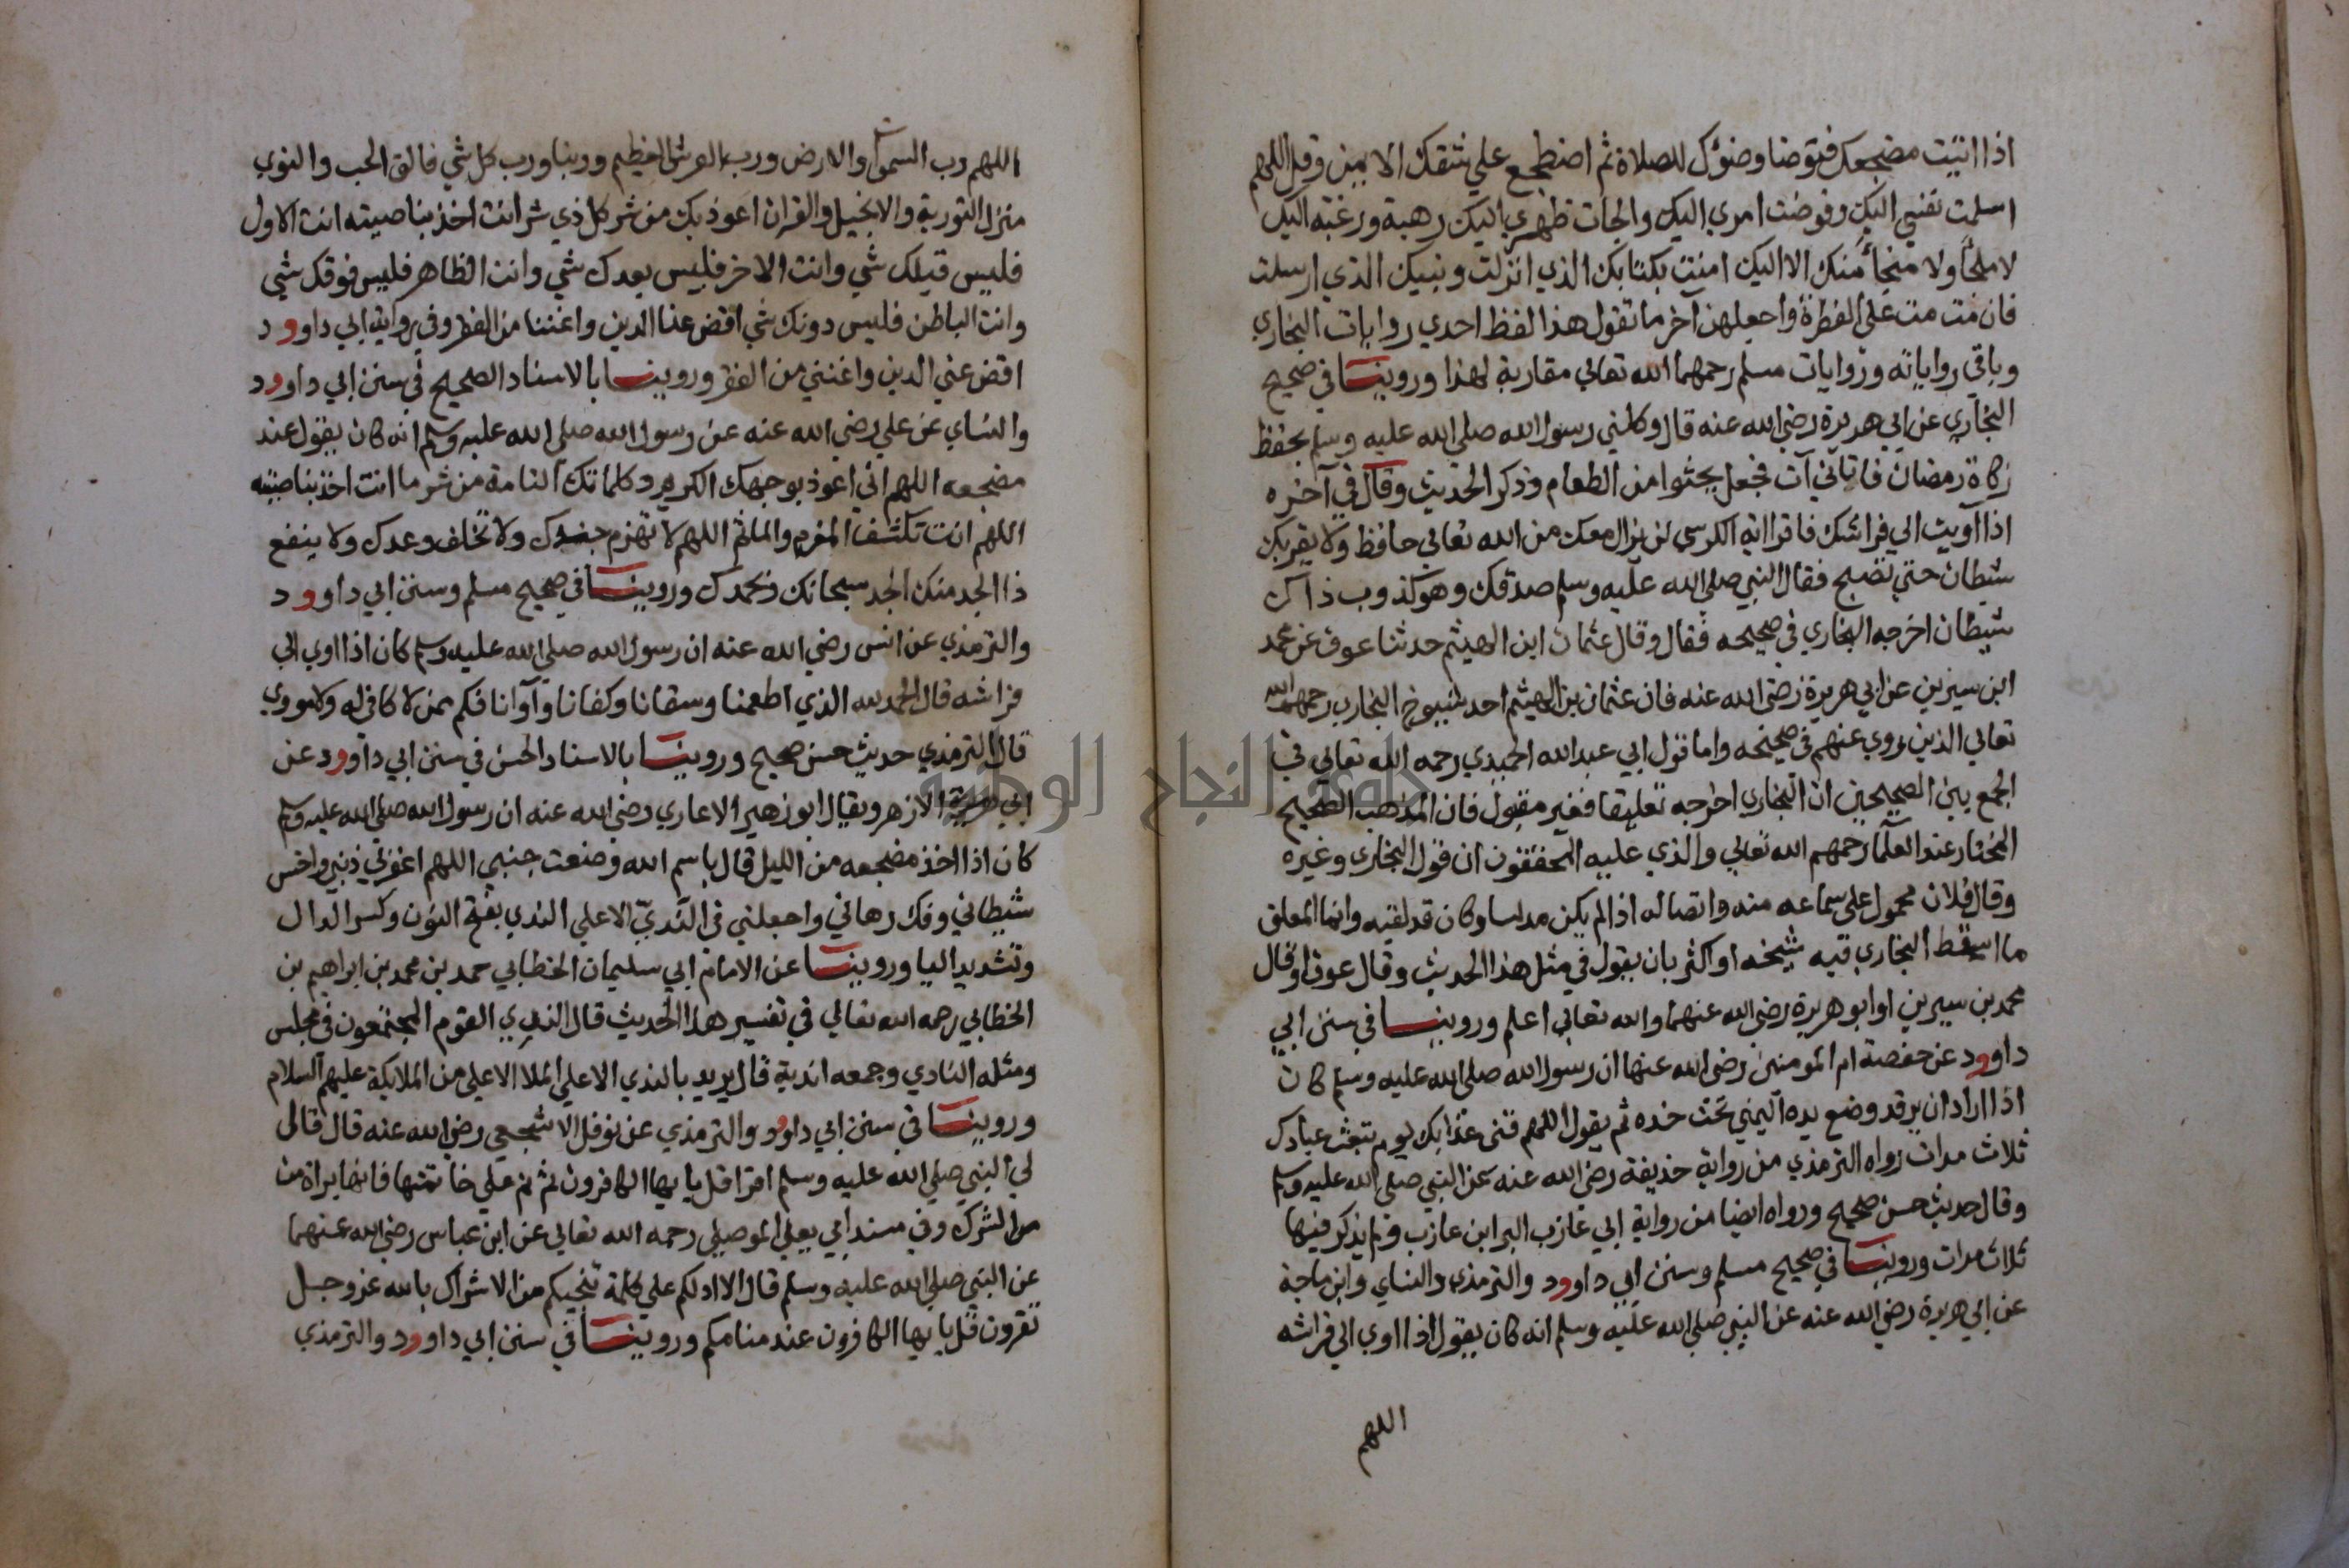 اذا اتيت مضجعك فتوضا وضوئك للصلاة ثم اضطجع علي شقك الايمن وقل اللهم
اسلمت نفسي اليك وفوضت امري اليك والجات ظهري اليك رهبة ورغبة اليك
لا ملجأ ولا منجأ منك الا اليك امنت بكتابك الذي انزلت ونبيك الذي ارسلت
فان مت مت على الفطرة واجعلهن آخر ما تقول هذا لفظ احدي روايات البخاري
وباقي رواياته وروايات مسلم رحمهما الله تعالي مقاربة لهذا وروينا في صحيح
البخاري عن ابي هريرة رضي الله عنه قال وكلني رسول الله صلي الله عليه وسلم بحفظ
زكاة رمضان فاتاني آت فجعل يحثوا من الطعام وذكر الحديث وقال في آخره
اذا آويت الي فراشك فاقرا اية الكرسي لن يزال معك من الله تعالي حافظ ولا يقربك
شيطان حتي تصبح فقال النبي صلي الله عليه وسلم صدقك وهو كذوب ذاك
شيطان اخرجه البخاري في صحيحه فقال وقال عثمان ابن الهيثم حدثنا عوف عن محمد
ابن سيرين عن ابي هريرة رضي الله عنه فان عثمان بن الهيثم احد شيوخ البخاري رحمهم الله
تعالي الذين روي عنهم في صحيحه واما قول ابي عبد الله الحميدي رحمه الله تعالي في
الجمع بين الصحيحين ان البخاري اخرجه تعليقا فغير مقبول فان المذهب الصحيح
المختار عند العلما رحمهم الله تعالي والذي عليه المحققون ان قول البخاري وغيره
وقال فلان محمول علي سماعه منه واتصاله اذا لم يكن مدلسا وكان قد لقيه وانما المعلق
ما اسقط البخاري فيه شيخه او اكثر بان يقول في مثل هذا الحديث وقال عوف او قال
محمد بن سيرين او ابو هريرة رضي الله عنهما والله تعالي اعلم وروينا في سنن ابي
داوود عن حفصة ام المومنين رضي الله عنها ان رسول الله صلي الله عليه وسلم كان
اذا اراد ان يرقد وضع يده اليمني تحت خده ثم يقول اللهم قني عذابك يوم تبعث عبادك
ثلاث مرات رواه الترمذي من رواية حذيفة رضي الله عنه عن النبي صلي الله عليه وسلم
وقال حديث حسن صحيح ورواه ايضا من رواية ابي عازب البرا ابن عازب ولم يذكر فيها
ثلاث مرات وروينا في صحيح مسلم وسنن ابي داوود والترمذي والنساي وابن ماجة
عن ابي هريرة رضي الله عنه عن النبي صلي الله عليه وسلم انه كان يقول اذا اوي الي فراشه
اللهم
اللهم رب السموات والارض ورب العرش العظيم وربنا ورب كل شي فالق الحب والنوي
منزل التورية والانجيل والقران اعوذ بك من شر كل ذي شر انت اخذ بناصيته انت الاول
فليس قبلك شي وانت الاخر فليس بعدك شي وانت الظاهر فليس فوقك شي
وانت الباطن فليس دونك شي اقض عنا الدين واغننا من الفقر وفي رواية ابي داوود
اقض عني الدين واغنني من الفقر وروينا بالاسناد الصحيح في سنن ابي داوود
والنساي عن علي رضي الله عنه عن رسول الله صلي الله عليه وسلم انه كان يقول عند
مضجعه اللهم اني اعوذ بوجهك الكريم وكلماتك التامة من شر ما انت اخذ بناصيته
اللهم انت تكشف المغرم والماثم اللهم لا تهزم جندك ولا تخلف وعدك ولا ينفع
ذا الجد منك الجد سبحانك وبحمدك وروينا في صحيح مسلم وسنن ابي داوود
والترمذي عن انس رضي الله عنه ان رسول الله صلي الله عليه وسلم كان اذا اوي الي
فراشه قال الحمد لله الذي اطعمنا وسقانا وكفانا وآوانا فكم ممن لا كافي له ولا مووي
قال الترمذي حديث حسن صحيح وروينا بالاسناد الحسن في سنن ابي داوود عن
ابي الازهر ويقال ابو زهير الانماري رضي الله عنه ان رسول الله صلي الله عليه وسلم
كان اذا اخذ مضجعه من الليل قال باسم الله وضعت جنبي اللهم اغفرلي ذنبي واخس
شيطاني وفك رهاني واجعلني في الندي الاعلي الندي بفتح النون وكسر الدال
وتشديد اليا وروينا عن الامام ابي سليمان الخطابي حمد بن محمد بن ابراهيم بن
الخطابي رحمه الله تعالي في تفسير هذا الحديث قال الندي القوم المجتمعون في مجلس
ومثله النادي وجمعه اندية قال يريد بالندي الاعلي الملا الاعلي من الملايكة عليهم السلام
وروينا في سنن ابي داوود والترمذي عن نوفل الاشجعي رضي الله عنه قال قال
لي النبي صلي الله عليه وسلم اقرا قل يا يها الكافرون ثم نم علي خاتمتها فانها براة من
من الشرك وفي مسند ابي يعلي الموصلي رحمه الله تعالي عن ابن عباس رضي الله عنهما
عن النبي صلي الله عليه وسلم قال الا ادلكم علي كلمة تنجيكم من الاشراك بالله عز وجل
تقرون قل يا يها الكافرون عند منامكم وروينا في سنن ابي داوود والترمذي
جامعة النجاح الوطنية